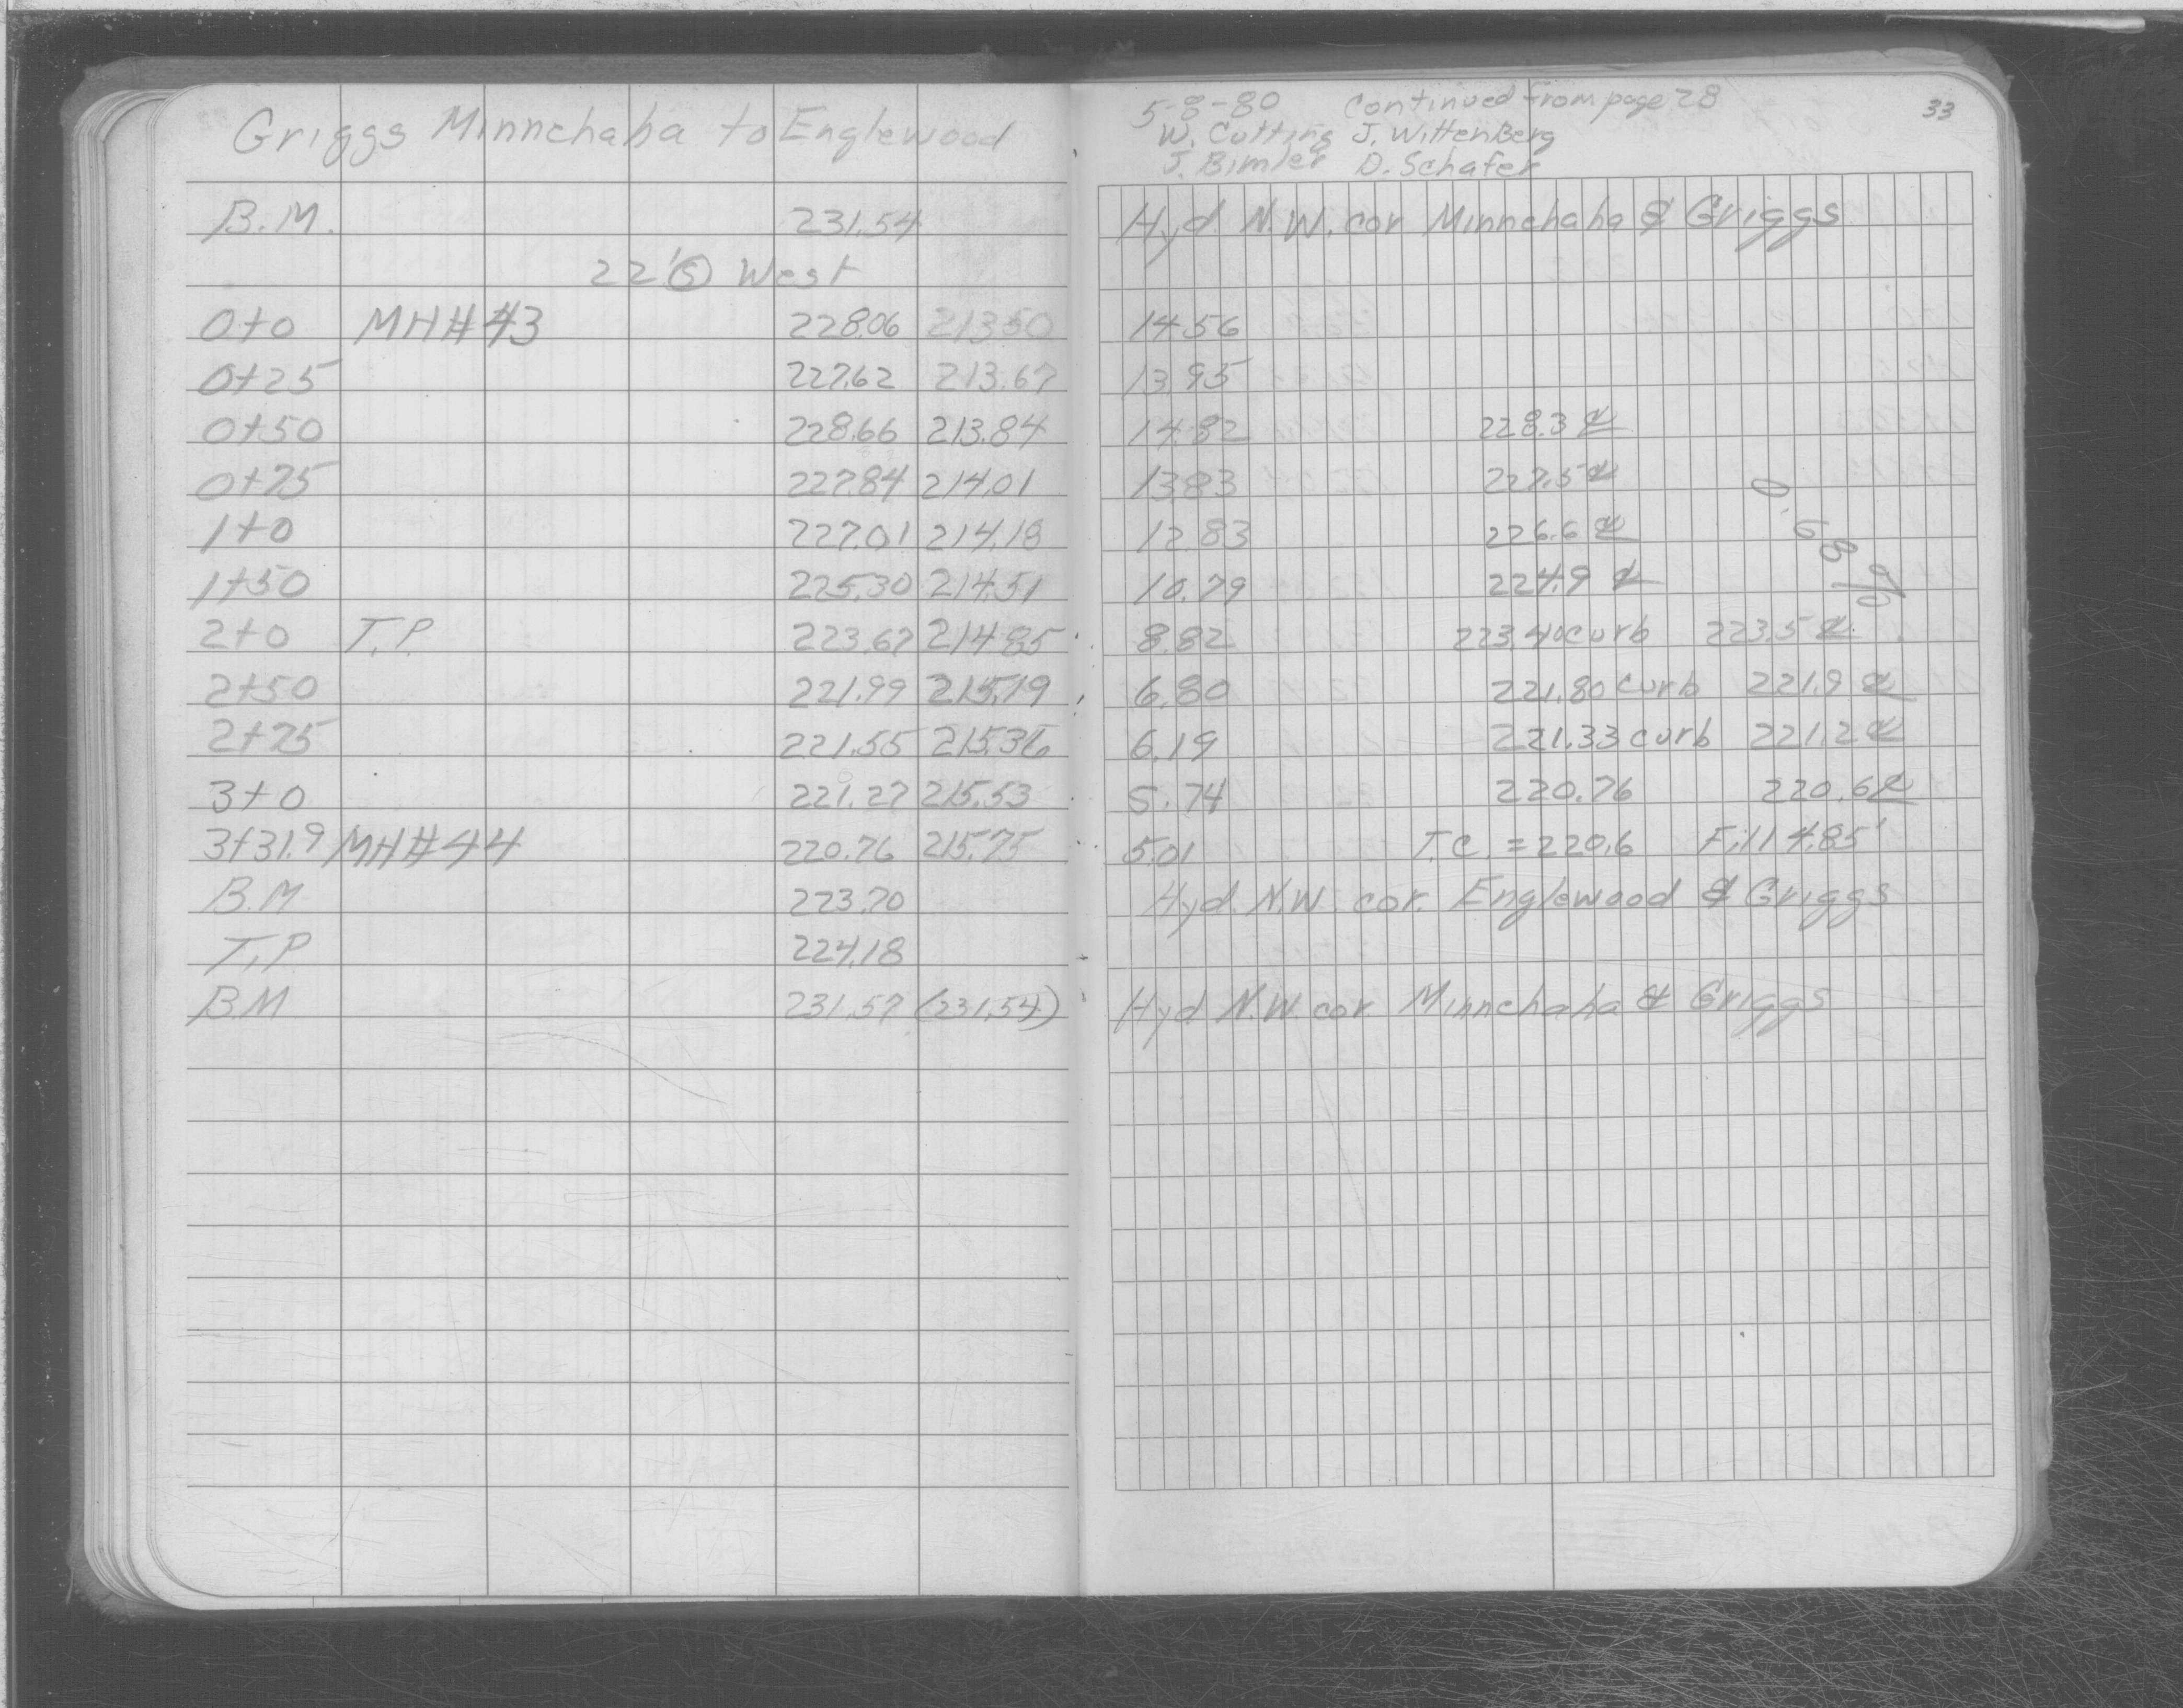 Griggs Minnehaha to Englewood
B.M. 231.54
22' Ⓢ West
0+0 MH# 43 228.06 213.50
0+25 227.62 213.67
0+50 228.66 213.84
0+75 227.84 214.01
1+0 227.01 214.18
1+50 225.30 214.51
2+0 T.P. 223.67 214.85
2+50 221.99 215.19
2+75 221.55 215.36
3+0 221.27 215.53
3+31.9 MH# 44 220.76 215.75
B.M 223.70
T.P 224.18
B.M 231.57 (231.54)
5-8-80 Continued from page 28
33
W. Cutting J. Wittenberg
J. Bimler D. Schafer
Hyd. N.W. cor Minnehaha & Griggs
14.56
13.95
14.82 228.3 ℄
13.83 227.5 ℄
12.83 226.6 ℄
10.79 224.9 ℄
0.68%
8.82 223.40 curb 223.5 ℄
6.80 221.80 curb 221.9 ℄
6.19 221.33 curb 221.2 ℄
5.74 220.76 220.6 ℄
5.01 T.C. = 220.6 Fill 4.85'
Hyd. N.W. cor. Englewood & Griggs
Hyd N.W. cor Minnehaha & Griggs